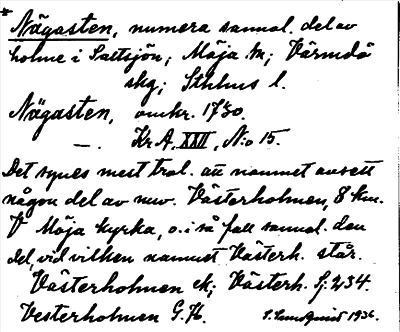 * Nägasten, numera sannol. del av
holme i Saltsjön; Möja sn; Värmdö
skg; Sthlms l.
Nägasten, omkr. 1730.
—. Kr A, XXII, N:o 15.
Det synes mest trol. att namnet avsett
någon del av nuv. Västerholmen, 8 km.
V Möja kyrka, o. i så fall sannol. den
del vid vilken namnet Västerh. står.
Västerholmen ek; Västerh. Sj. 234.
Vesterholmen G.K.
S. Lundquist 1936.